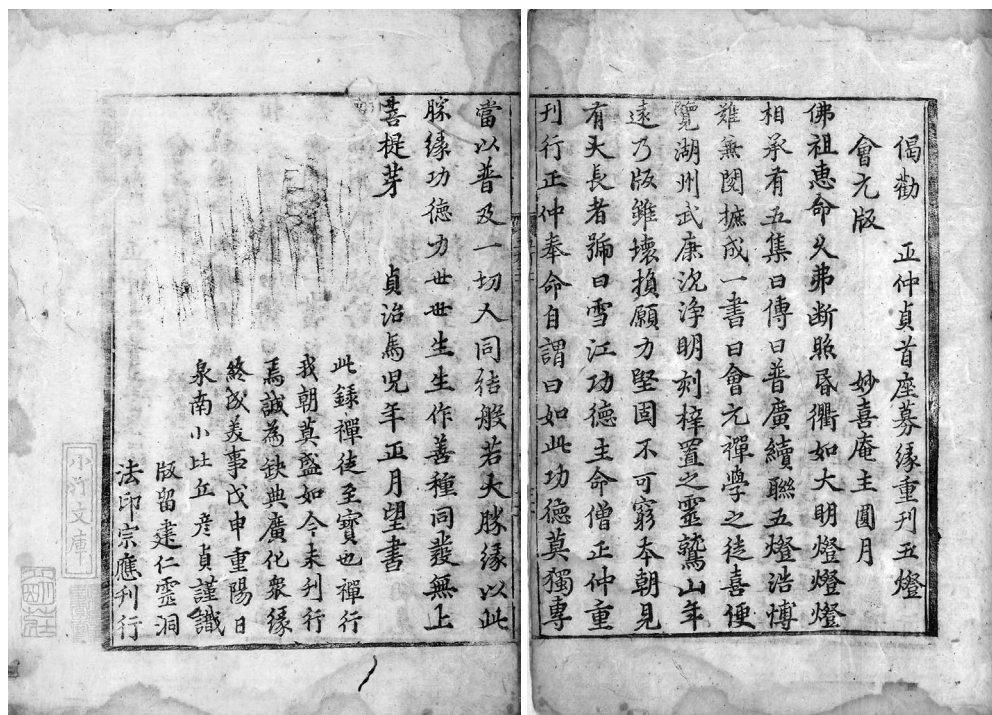 偈勸　正仲貞首座募緣重刊五燈
會元版　　　妙喜庵主圓月
佛祖惠命久弗断照昏衢如大明燈燈燈
相承有五集曰傳曰普廣續聯五燈浩博
難無閱摭成一書曰會元禪學之徒喜便
覽湖州武康沈淨明刻梓置之靈鷲山年
遠乃版雖壞損願力堅固不可窮本朝見
有大長者號曰雪江功德主命僧正仲重
刊行正仲奉命自謂曰如此功德莫獨專
當以普及一切人同結般若大勝緣以此
勝緣功德力世世生生作善種同發無上
菩提芽　　貞治焉児年正月望書
此録禪徒至寶也禪行
我朝莫盛如今未刊行
焉誠為缺典廣化衆緣
終成美事戊申重陽日
泉南小比丘彦貞謹識
版留建仁靈洞
法印宗應刊行
小汀文庫